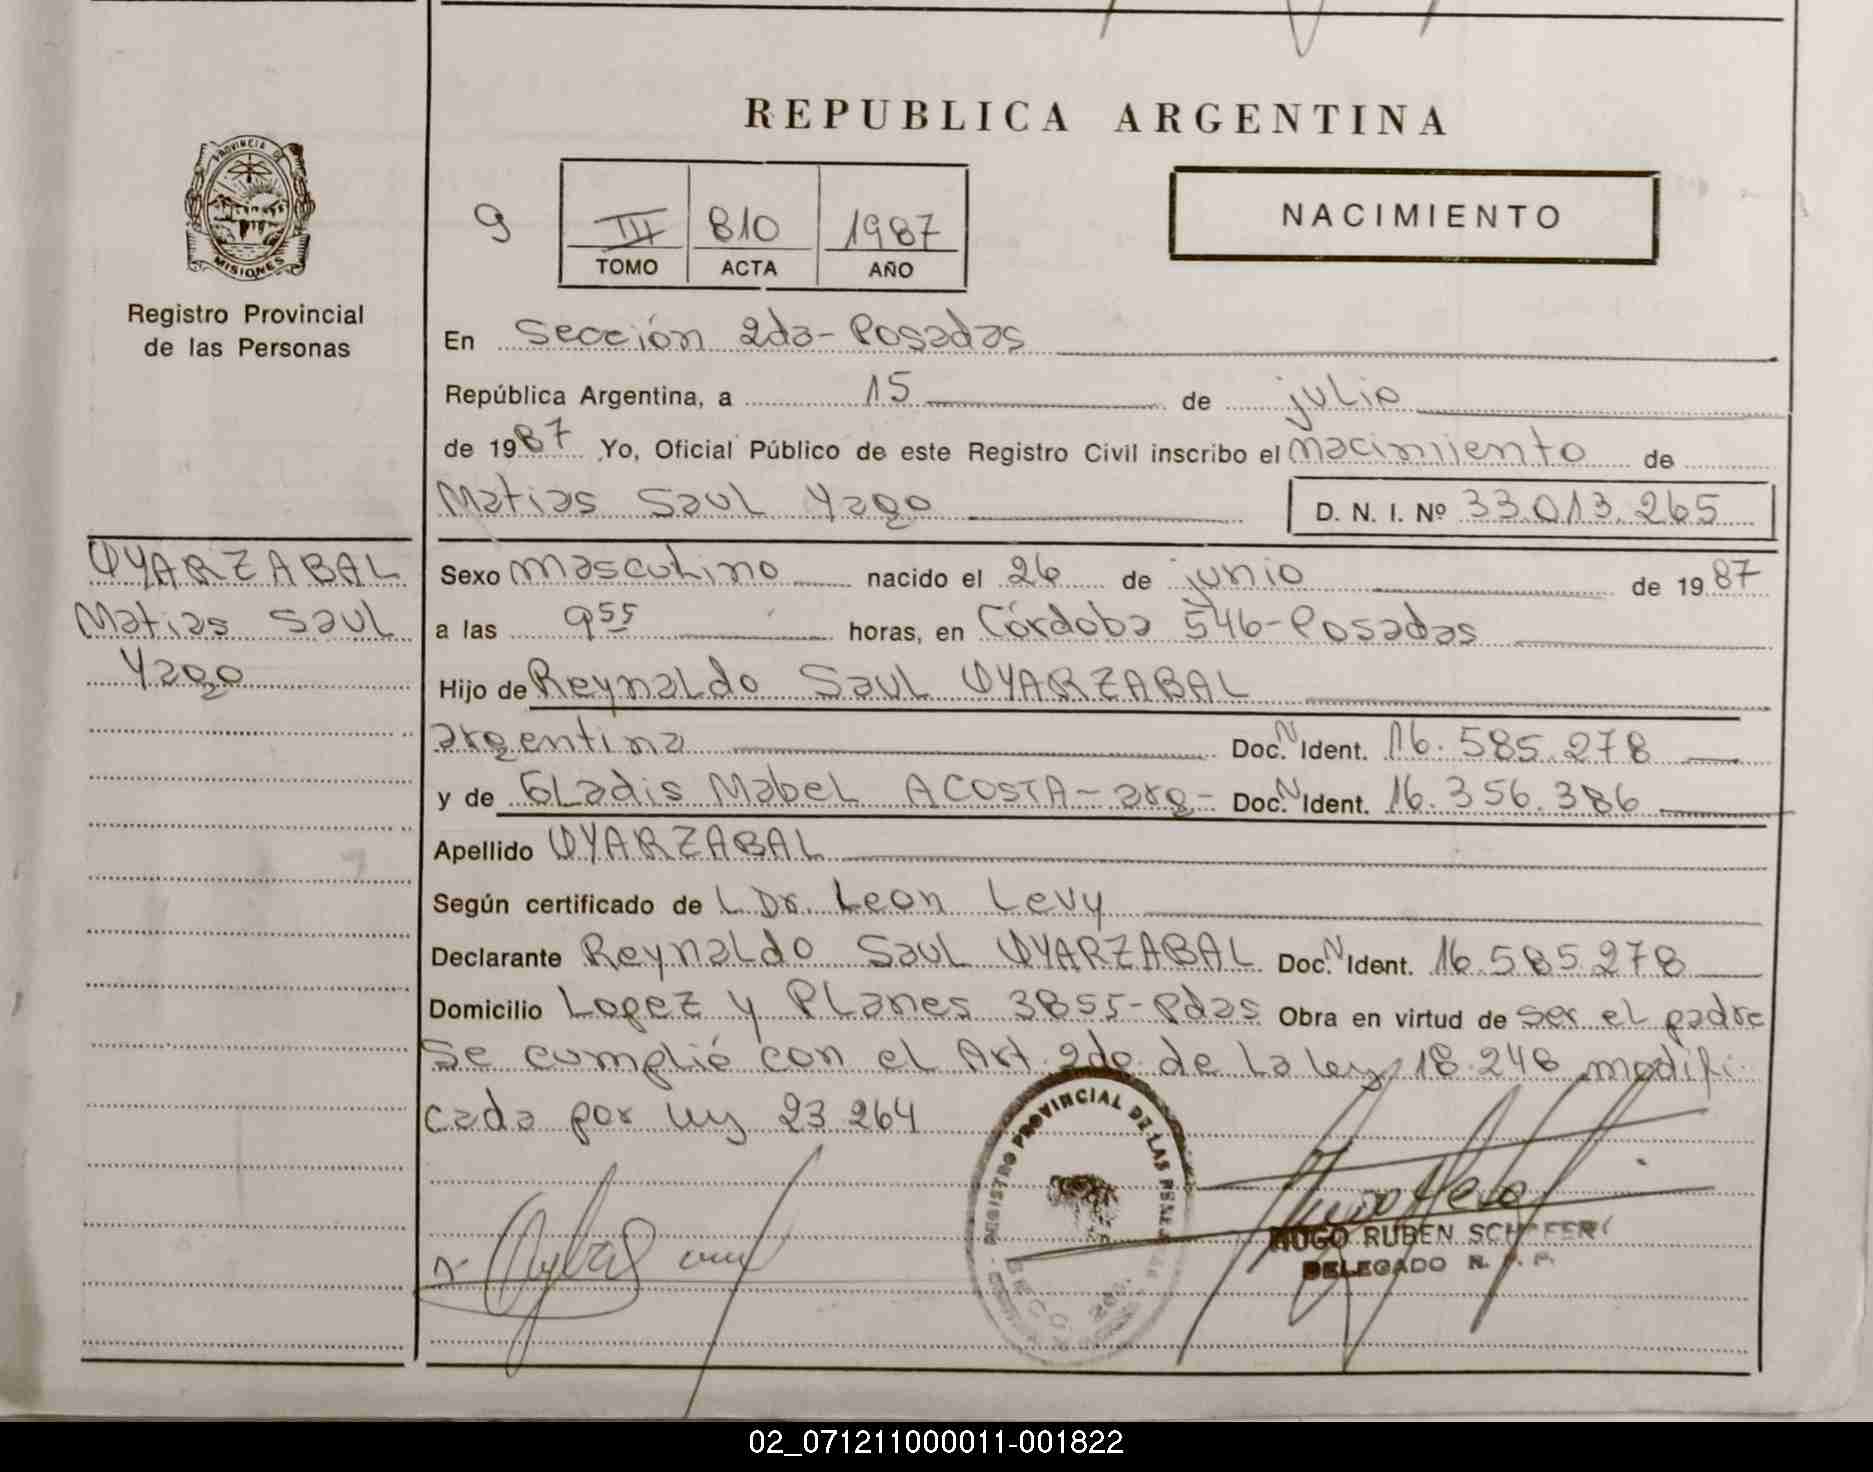 REPUBLICA ARGENTINA
PROVINCIA DE
MISIONES
Registro Provincial
de las Personas
9
III 810 1987
TOMO ACTA AÑO
NACIMIENTO
En Sección 2da - Posadas
República Argentina, a 15 de julio
de 1987 Yo, Oficial Público de este Registro Civil inscribo el nacimiento de
Matias Saul Yago D. N. I. Nº 33.013.265
OYARZABAL
Matias Saul
Yago
Sexo masculino nacido el 26 de junio de 1987
a las 9 55 horas, en Córdoba 546 - Posadas
Hijo de Reynaldo Saul OYARZABAL
argentina Doc. N Ident. 16.585.278
y de Gladis Mabel ACOSTA - arg - Doc. N Ident. 16.356.386
Apellido OYARZABAL
Según certificado de L Dr. Leon Levy
Declarante Reynaldo Saul OYARZABAL Doc. N Ident. 16.585.278
Domicilio Lopez y Planes 3855 - Pdas Obra en virtud de ser el padre
Se cumplió con el Art. 2do. de la ley 18.248 modifi-
cada por ley 23.264
REGISTRO PROVINCIAL DE LAS
HUGO RUBEN
DELEGADO
02_071211000011-001822